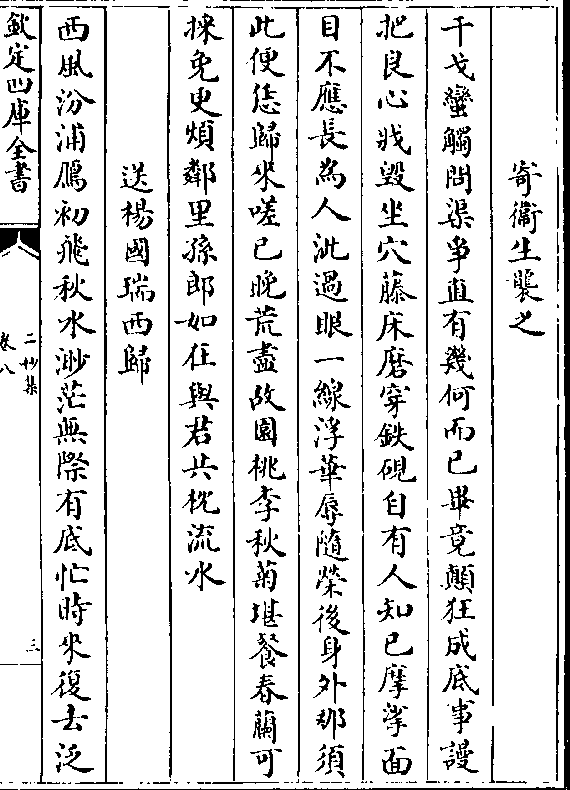 寄衛生襲之
干戈蠻觸問渠爭直有幾何而已畢竟顛狂成底事謾
把良心戕毀坐穴藤床磨穿鉄硯自有人知已摩挲面
目不應長為人泚過眼一線浮華辱隨榮後身外那須
此便恁歸來嗟已晚荒盡故園桃李秋菊堪餐春蘭可
採免更煩鄰里孫郎如在與君共枕流水
送楊國瑞西歸
西風汾浦鴈初飛秋水渺茫無際有底忙時來復去泛
欽定四庫全書
二妙集
卷八
三